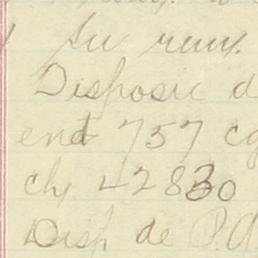 Su rum.
Disposic d
end 757 cg
ch/ 42830
Disp de P.A